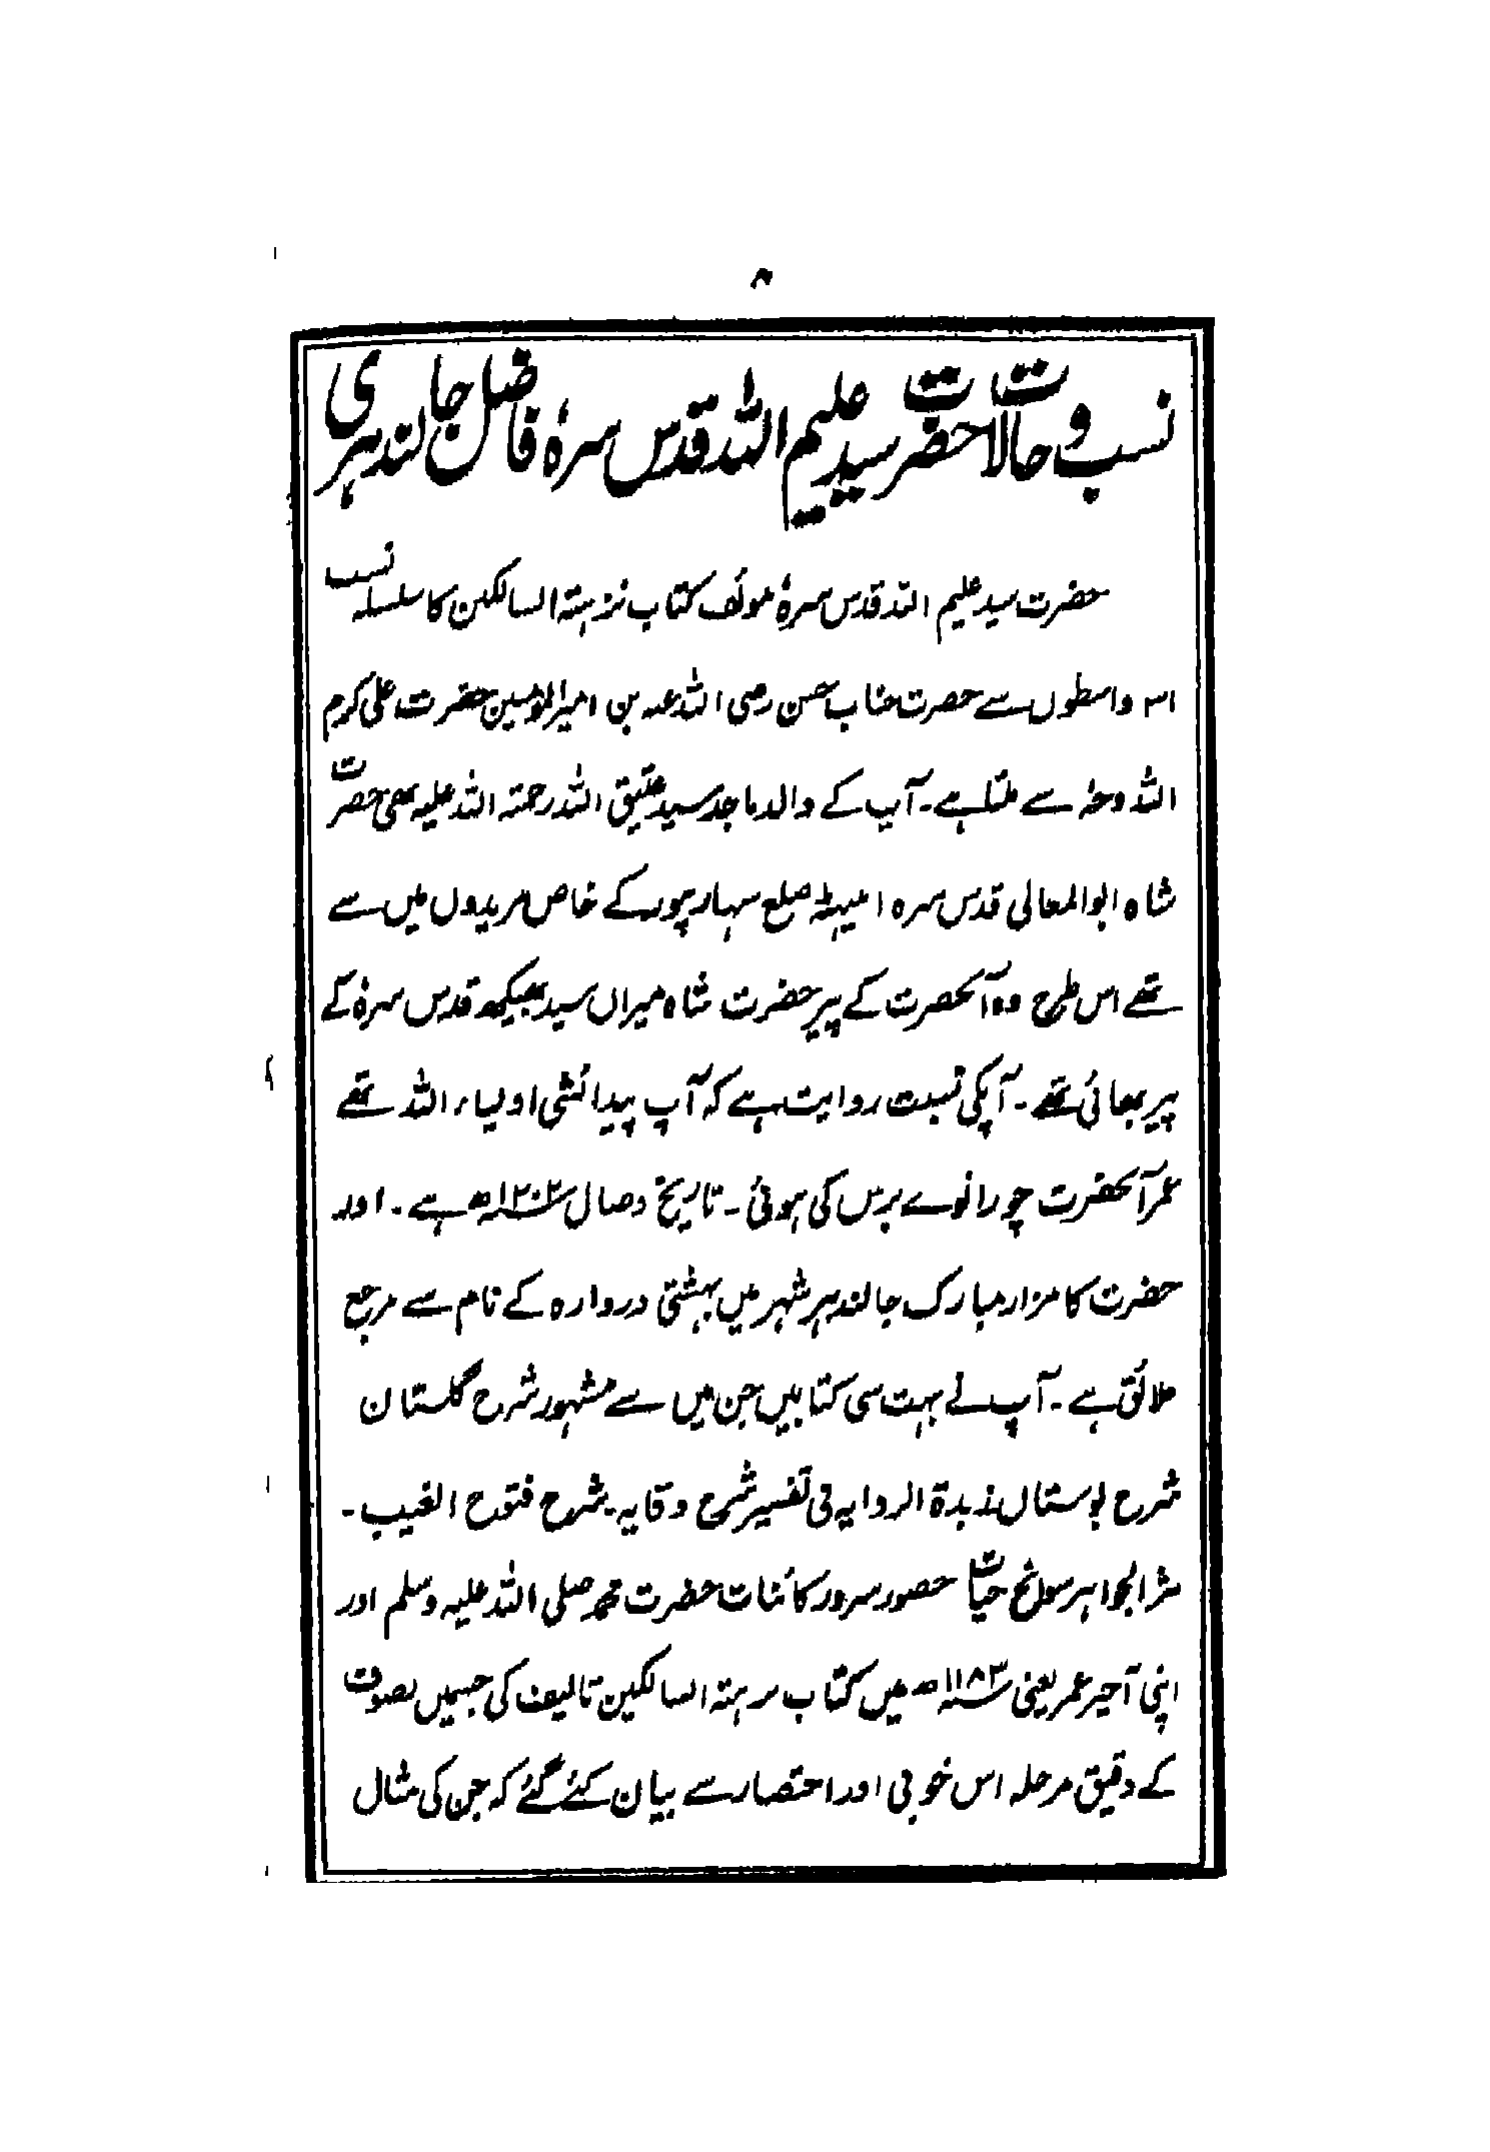 نسب و حالات حضرت سید علیم اللہ قدس سرہٗ فاضل جالندہری
حضرت سید علیم اللہ قدس سرہٗ مولف کتاب نزہتہ السالکین کا سلسلہ نسب
واسطوں سے حضرت جناب حسن رضی اللہ عنہ بن امیر المومنین حضرت علی کرم
اللہ وجہٗ سے ملتا ہے۔ آپ کے والد ماجد سید عتیق اللہ رحمتہ اللہ علیہ بھی حضرت
شاہ ابو المعالی قدس سرہ انبیہٹہ ضلع سہارنپور کے خاص مریدوں میں سے
تھے اس طرح وہ آنحضرت کے پیر حضرت شاہ میراں سید بھیکھ قدس سرہٗ کے
پیر بھائی تھے۔ آپکی نسبت روایت ہے کہ آپ پیدائشی اولیاء اللہ تھے
عمر آنحضرت چورانوے برس کی ہوئی۔ تاریخ وصال ۱۲۰۲ھ ہے۔ اور
حضرت کا مزار مبارک جالندہر شہر میں بہشتی دروازہ کے نام سے مرجع
خلائق ہے۔ آپ نے بہت سی کتابیں جن میں سے مشہور شرح گلستان
شرح بوستاں زبدۃ الروایہ فی تفسیر شرح وقایہ۔ شرح فتوح الغیب۔
نثر الجواہر سوانح حیات حضور سرور کائنات حضرت محمد صلی اللہ علیہ وسلم اور
اپنی آخیر عمر یعنی ۱۱۸۳ھ میں کتاب نزہتہ السالکین تالیف کی جسمیں تصوف
کے دقیق مرحلہ اس خوبی اور اختصار سے بیان کئے گئے کہ جن کی مثال